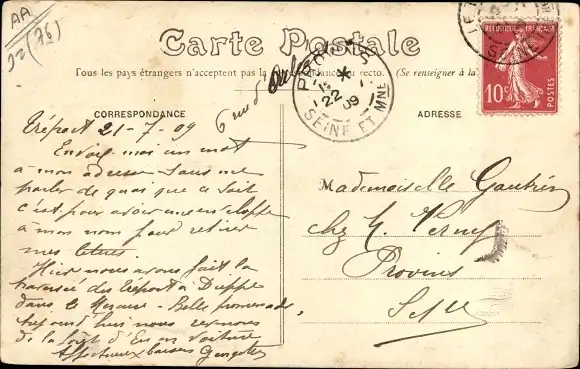 AA
92 (76)
Carte Postale
Tous les pays étrangers n'acceptent pas la correspondance au recto. (Se renseigner à la
6 rue d'
CORRESPONDANCE
ADRESSE
PROVINS
22 -
09
SEINE ET MNE
RÉPUBLIQUE FRANÇAISE
10c
POSTES
Tréport 21-7-09
Envoie moi un mot
à mon adresse sans me
parler de quoi que ce soit
c'est pour avoir une enveloppe
à mon nom pour retirer
mes lettres.
Hier nous avons fait la
traversée du Tréport à Dieppe
dans le - Belle promenade
aujourd'hui nous revenons
de la forêt d'Eu en voiture
Affectueux baisers
Mademoiselle Gautrin
chez M. Verney
Provins
S et M